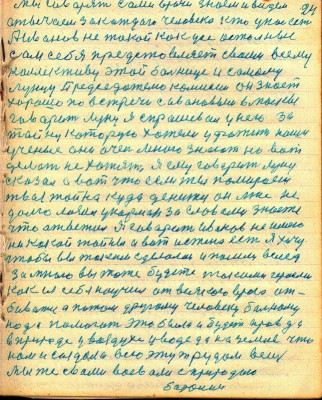 мы говорят сами врачи знаем и видим 24
отвечаем за каждого человека кто у нас есть
Иванов не такой как все остальные
сам себя представляет своим всему
коллективу этой больнице и самому
Луну Председателю комисии он знает
хорошо по встречи с Ивановым в Москве
говорит Луну я спрашивал у него за
тайну которую хотели узнать наши
ученые они очень много знают но вот
делать не хотят Я ему говорит Луну
сказал а вот что если ты помираеш
твая тайна куда денится он мне не
долго думал
что ответил Я говорит Иванов не имею
никакой тайны а вот истена есть Я хочу
чтобы вы такими сделались и пошли вслед
за мною вы тоже будете такими героями
как я себя научил от всякого врага от-
биваться а потом другому человеку больному
надо помогать это было и будет правда
в природе у воздухе у воде да на земле что
нам и создала всю эту природу всему
Мы же с вами воевали с природою